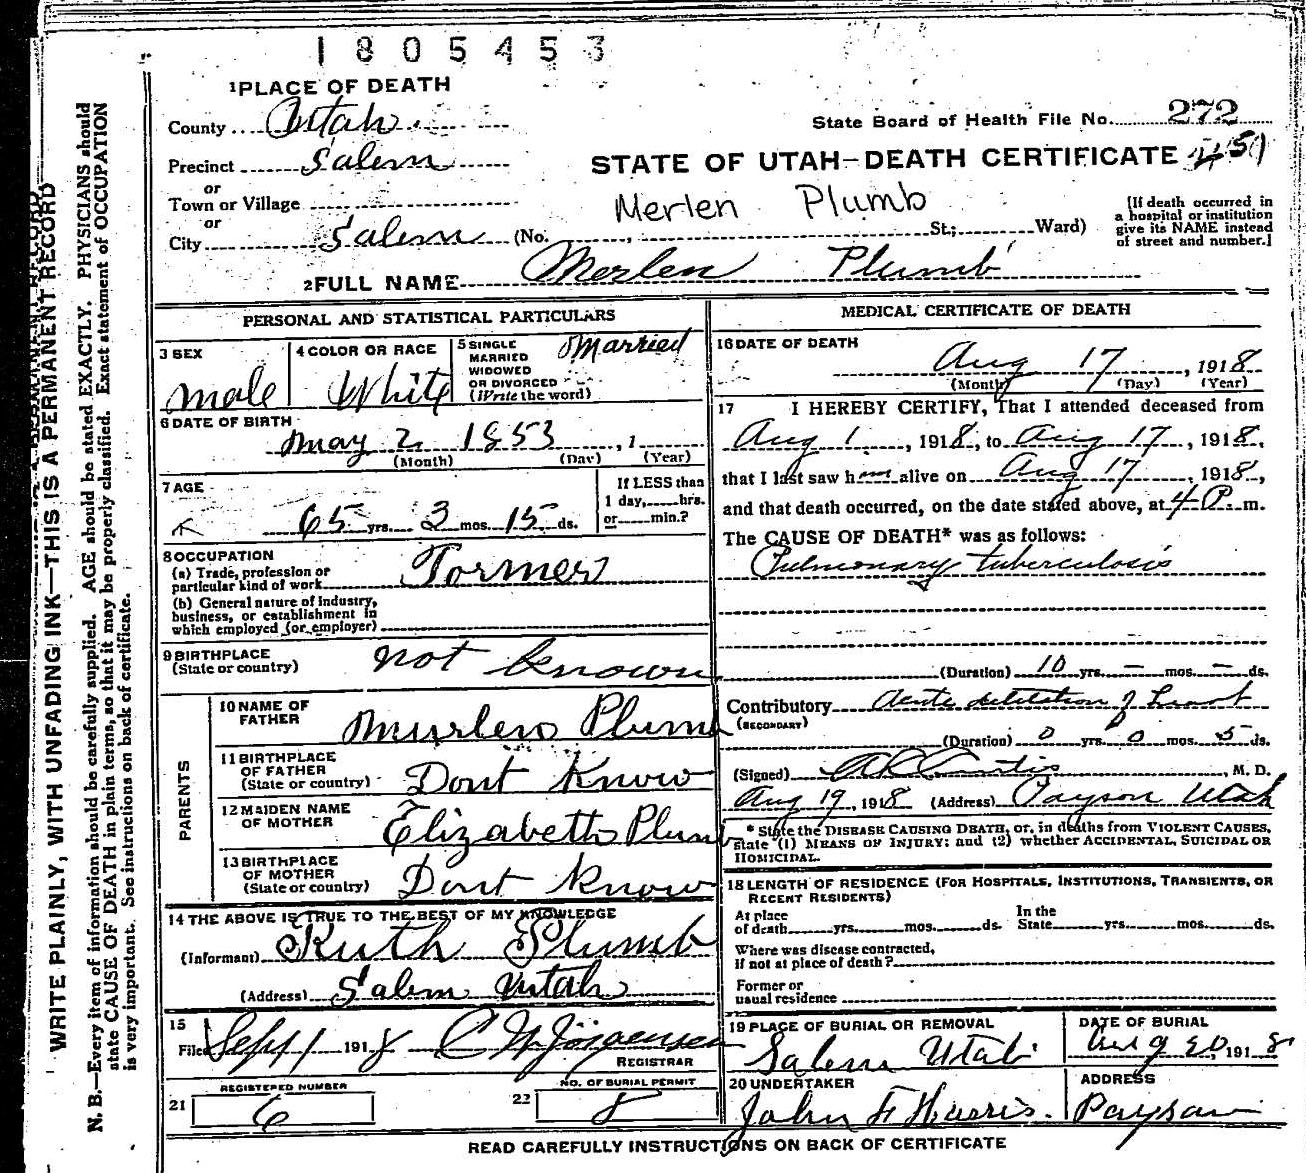 1805453
1 PLACE OF DEATH
County Utah
State Board of Health File No. 272
Precinct Salem
STATE OF UTAH—DEATH CERTIFICATE 451
or
Town or Village
Merlen Plumb
or
City Salem (No. , St.; Ward)
[If death occurred in
a hospital or institution
give its NAME instead
of street and number.]
2 FULL NAME Merlen Plumb
PERSONAL AND STATISTICAL PARTICULARS
3 SEX
male
4 COLOR OR RACE
White
5 SINGLE
MARRIED
WIDOWED
OR DIVORCED
(Write the word)
Married
6 DATE OF BIRTH
may 2 1853 , 1
(Month) (Day) (Year)
7 AGE
65 yrs. 3 mos. 15 ds.
If LESS than
1 day, hrs.
or min.?
8 OCCUPATION
(a) Trade, profession or
particular kind of work Former
(b) General nature of industry,
business, or establishment in
which employed (or employer)
9 BIRTHPLACE
(State or country) not known
PARENTS
10 NAME OF
FATHER Murlen Plumb
11 BIRTHPLACE
OF FATHER
(State or country) Dont Know
12 MAIDEN NAME
OF MOTHER Elizabeth Plumb
13 BIRTHPLACE
OF MOTHER
(State or country) Dont Know
14 THE ABOVE IS TRUE TO THE BEST OF MY KNOWLEDGE
(Informant) Ruth Plumb
(Address) Salem Utah
15
Filed Sept 1 1918 C N Jorgensen
REGISTRAR
REGISTERED NUMBER
21 6
NO. OF BURIAL PERMIT
22 8
MEDICAL CERTIFICATE OF DEATH
16 DATE OF DEATH
Aug 17 , 1918
(Month) (Day) (Year)
17 I HEREBY CERTIFY, That I attended deceased from
Aug 1 , 1918, to Aug 17 , 1918,
that I last saw him alive on Aug 17 , 1918,
and that death occurred, on the date stated above, at 4 P. m.
The CAUSE OF DEATH* was as follows:
Pulmonary tuberculosis
(Duration) 10 yrs. – mos. – ds.
Contributory Acute dilitation of heart
(SECONDARY)
(Duration) 0 yrs. 0 mos. 5 ds.
(Signed) Curtis , M. D.
Aug 19, 1918 (Address) Payson Utah
* State the DISEASE CAUSING DEATH, or, in deaths from VIOLENT CAUSES,
state (1) MEANS OF INJURY; and (2) whether ACCIDENTAL, SUICIDAL OR
HOMICIDAL.
18 LENGTH OF RESIDENCE (FOR HOSPITALS, INSTITUTIONS, TRANSIENTS, OR
RECENT RESIDENTS)
At place
of death yrs. mos. ds.
In the
State yrs. mos. ds.
Where was disease contracted,
if not at place of death?
Former or
usual residence
19 PLACE OF BURIAL OR REMOVAL
Salem Utah
DATE OF BURIAL
Aug 20, 1918
20 UNDERTAKER
John F Harris.
ADDRESS
Payson
READ CAREFULLY INSTRUCTIONS ON BACK OF CERTIFICATE
WRITE PLAINLY, WITH UNFADING INK—THIS IS A PERMANENT RECORD
N. B.—Every item of information should be carefully supplied. AGE should be stated EXACTLY. PHYSICIANS should
state CAUSE OF DEATH in plain terms, so that it may be properly classified. Exact statement of OCCUPATION
is very important. See instructions on back of certificate.